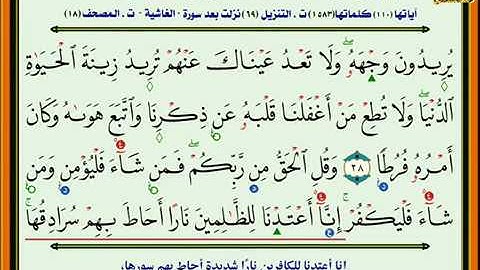 آياتها (١١٠) كلماتها (١٥٨٣) ت . التنزيل (٦٩) نزلت بعد سورة - الغاشية - ت . المصحف (١٨)
يُرِيدُونَ وَجْهَهُۥۖ وَلَا تَعْدُ عَيْنَاكَ عَنْهُمْ تُرِيدُ زِينَةَ الْحَيَوٰةِ
الدُّنْيَاۖ وَلَا تُطِعْ مَنْ أَغْفَلْنَا قَلْبَهُۥ عَن ذِكْرِنَا وَاتَّبَعَ هَوَىٰهُ وَكَانَ
أَمْرُهُۥ فُرُطًا ٢٨ وَقُلِ الْحَقُّ مِن رَّبِّكُمْۖ فَمَن شَآءَ فَلْيُؤْمِن وَمَن
شَآءَ فَلْيَكْفُرْۚ إِنَّآ أَعْتَدْنَا لِلظَّٰلِمِينَ نَارًا أَحَاطَ بِهِمْ سُرَادِقُهَاۚ
إنا أعتدنا للكافرين نارًا شديدة أحاط بهم سورها،